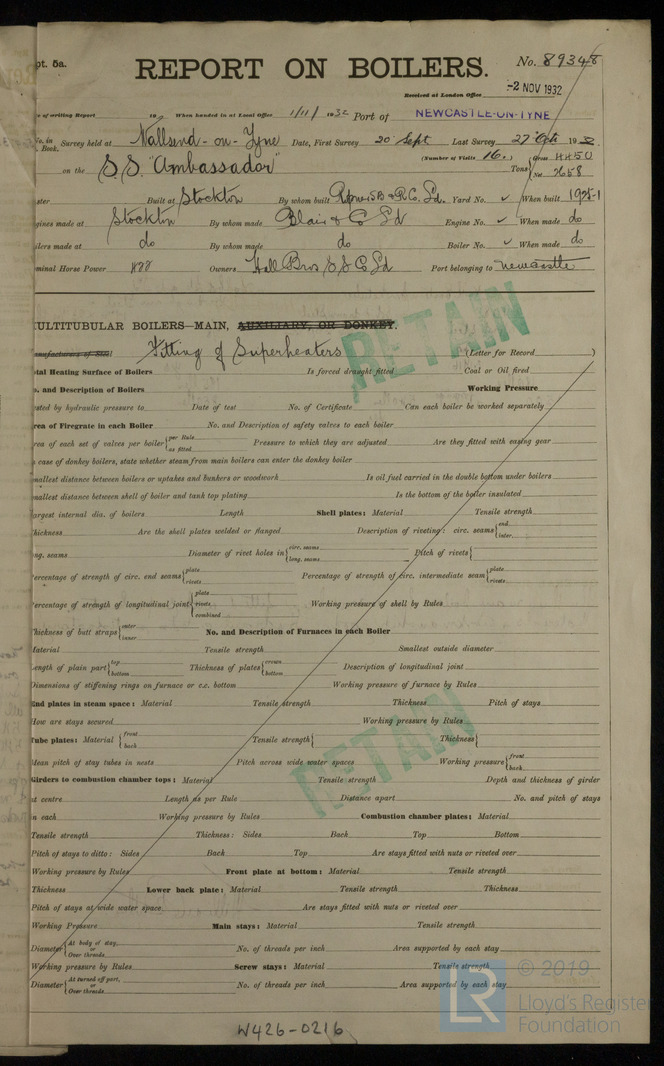 pt. 5a.
No. 89348
REPORT ON BOILERS.
Received at London Office
-2 NOV 1932
of writing Report 19 When handed in at Local Office 1/11/1932 Port of NEWCASTLE-ON-TYNE
No. in Survey held at Wallsend-on-Tyne Date, First Survey 20 Sept Last Survey 27 Oct 19 32
Book.
(Number of Visits 16.)
on the S.S. "Ambassador"
Tons Gross 4450
Net 2658
Built at Stockton By whom built Ropner S.B. & R. Co. Ld. Yard No. When built 1925-1
gines made at Stockton By whom made Blair & Co Ld Engine No. When made do
ilers made at do By whom made do Boiler No. When made do
minal Horse Power Owners Hall Bros S S Co Ld Port belonging to Newcastle
RETAIN
ULTITUBULAR BOILERS—MAIN, AUXILIARY, OR DONKEY.
anufacturers of Steel Fitting of Superheaters (Letter for Record )
tal Heating Surface of Boilers Is forced draught fitted Coal or Oil fired
o. and Description of Boilers Working Pressure
sted by hydraulic pressure to Date of test No. of Certificate Can each boiler be worked separately
rea of Firegrate in each Boiler No. and Description of safety valves to each boiler
rea of each set of valves per boiler { per Rule as fitted Pressure to which they are adjusted Are they fitted with easing gear
case of donkey boilers, state whether steam from main boilers can enter the donkey boiler
mallest distance between boilers or uptakes and bunkers or woodwork Is oil fuel carried in the double bottom under boilers
mallest distance between shell of boiler and tank top plating Is the bottom of the boiler insulated
argest internal dia. of boilers Length Shell plates: Material Tensile strength
hickness Are the shell plates welded or flanged Description of riveting: circ. seams { end inter.
ng. seams Diameter of rivet holes in { circ. seams long. seams Pitch of rivets {
ercentage of strength of circ. end seams { plate rivets Percentage of strength of circ. intermediate seam { plate rivets
ercentage of strength of longitudinal joint { plate rivets combined Working pressure of shell by Rules
hickness of butt straps { outer inner No. and Description of Furnaces in each Boiler
aterial Tensile strength Smallest outside diameter
ength of plain part { top bottom Thickness of plates { crown bottom Description of longitudinal joint
imensions of stiffening rings on furnace or c.c. bottom Working pressure of furnace by Rules
End plates in steam space: Material Tensile strength Thickness Pitch of stays
How are stays secured Working pressure by Rules
RETAIN
Tube plates: Material { front back Tensile strength { Thickness {
Mean pitch of stay tubes in nests Pitch across wide water spaces Working pressure { front back
Girders to combustion chamber tops: Material Tensile strength Depth and thickness of girder
at centre Length as per Rule Distance apart No. and pitch of stays
in each Working pressure by Rules Combustion chamber plates: Material
Tensile strength Thickness: Sides Back Top Bottom
Pitch of stays to ditto: Sides Back Top Are stays fitted with nuts or riveted over
Working pressure by Rules Front plate at bottom: Material Tensile strength
Thickness Lower back plate: Material Tensile strength Thickness
Pitch of stays at wide water space Are stays fitted with nuts or riveted over
Working Pressure Main stays: Material Tensile strength
Diameter { At body of stay, or Over threads No. of threads per inch Area supported by each stay
Working pressure by Rules Screw stays: Material Tensile strength
Diameter { At turned off part, or Over threads No. of threads per inch Area supported by each stay
© 2019
LR
Lloyd's Register
Foundation
W426-0216